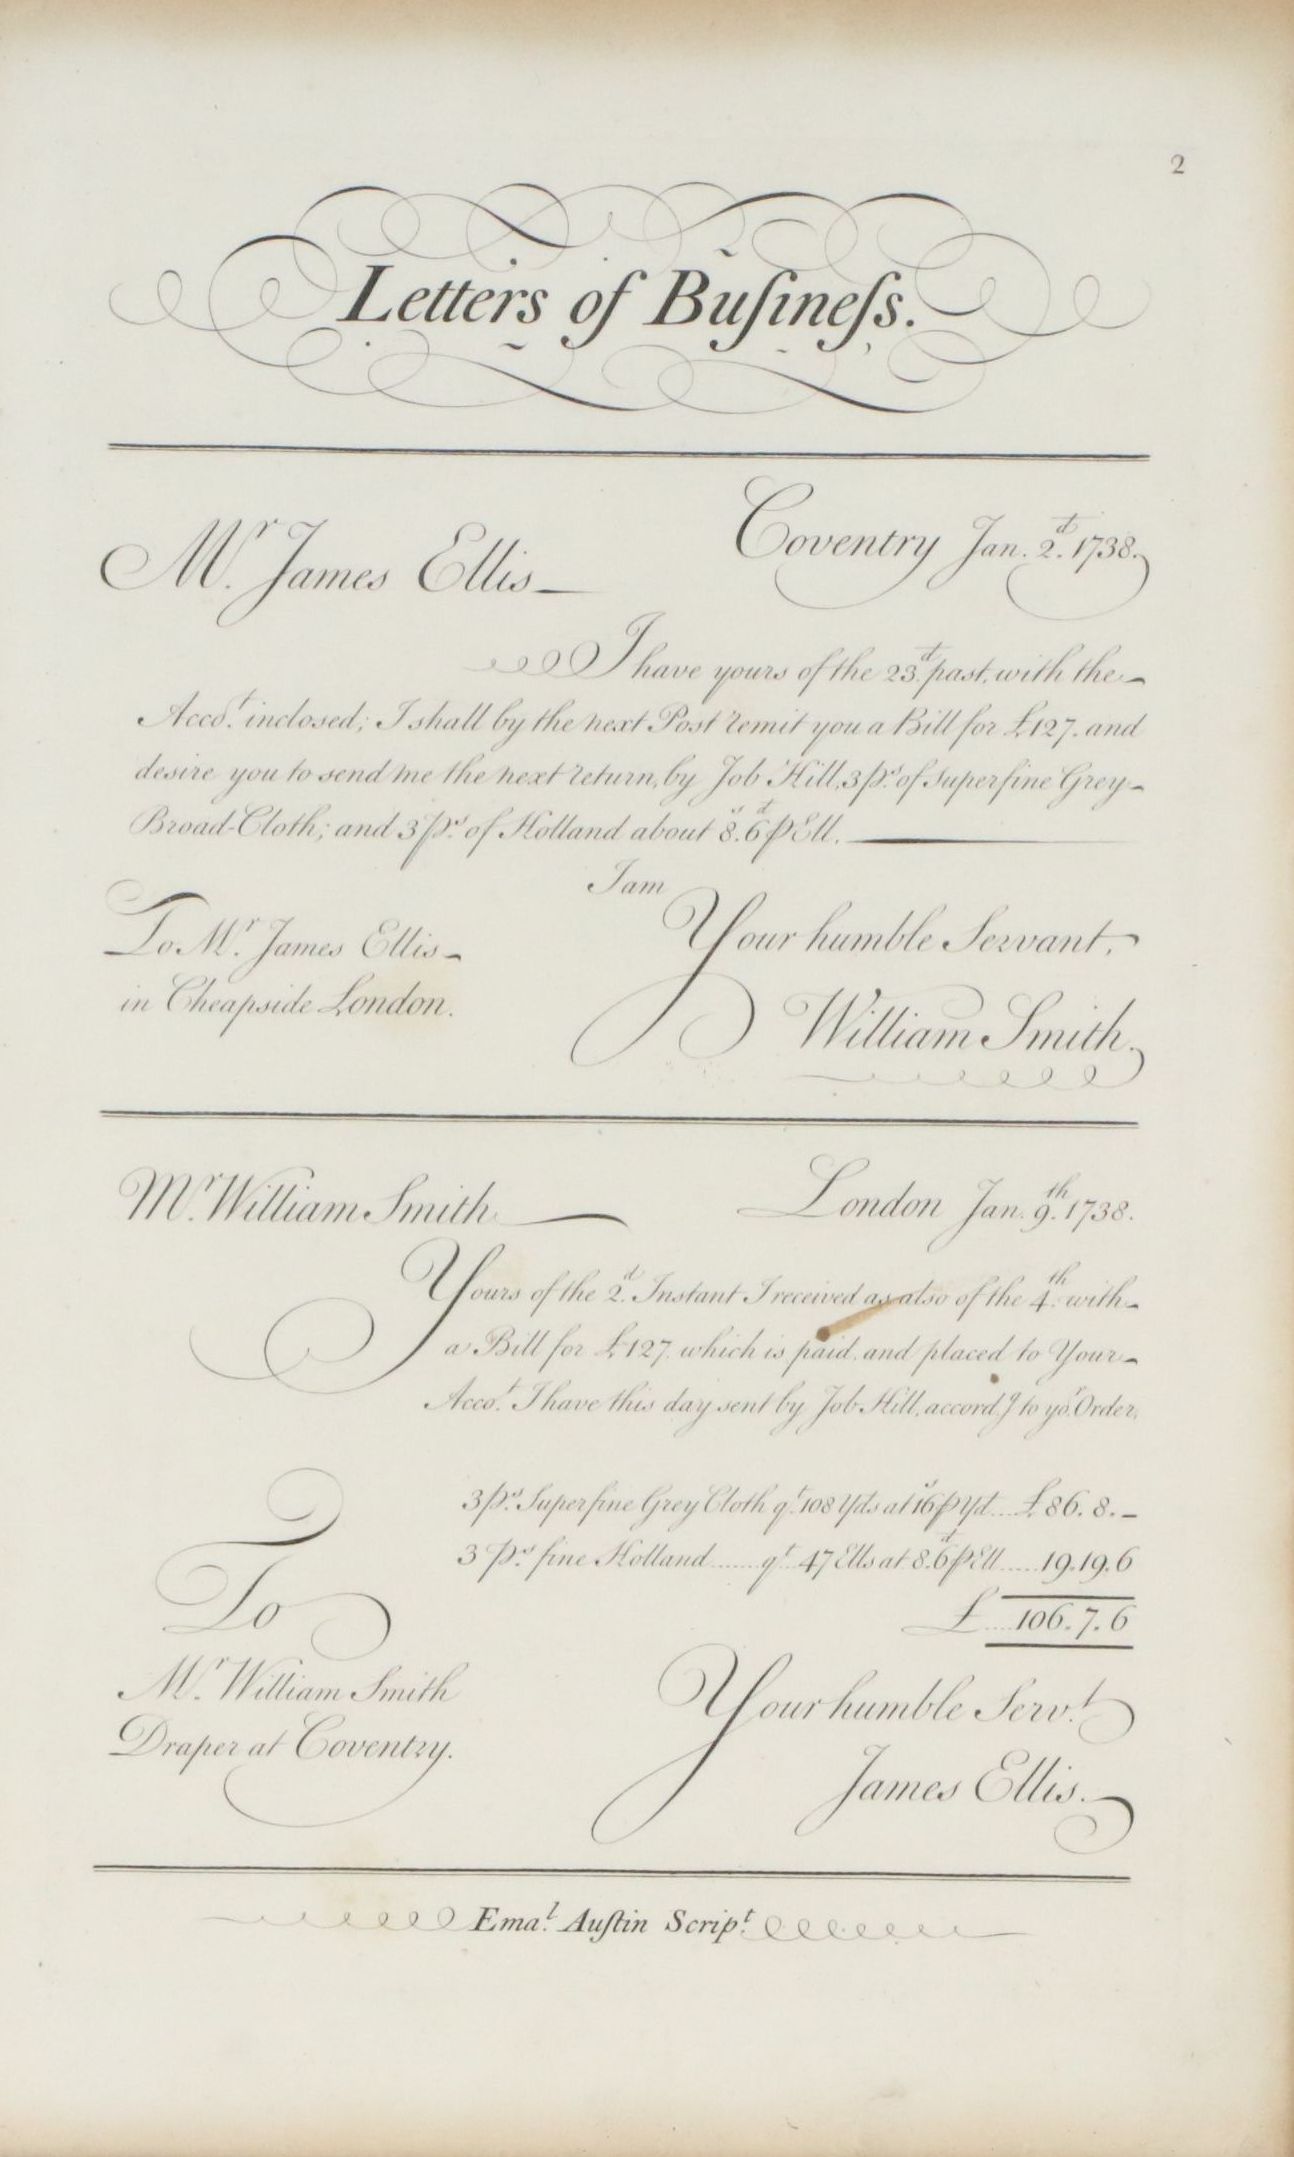 2
Letters of Buſineſs.
Coventry Jan. 2.d 1738.
Mr. James Ellis
I have yours of the 23.d past, with the
Acco.t inclosed; I shall by the next Post remit you a Bill for £127. and
desire you to send me the next return, by Job Hill, 3 p.s of Superfine Grey
Broad-Cloth; and 3 p.s of Holland about 8.s 6.d ꝑ Ell.
I am
Your humble Servant,
William Smith.
To Mr. James Ellis
in Cheapside London.
Mr. William Smith
London Jan. 9.th 1738.
Yours of the 2.d Instant I received as also of the 4.th with
a Bill for £127. which is paid, and placed to Your
Acco.t I have this day sent by Job Hill, accord.g to yo.r Order,
3 p.s Superfine Grey Cloth q.t 108 Yds at 16s ꝑ Yd .... £86. 8. –
3 p.s fine Holland ....... q.t 47 Ells at 8.6d ꝑ Ell ..... 19.19.6
£ .... 106. 7. 6
To
Mr. William Smith
Draper at Coventry.
Your humble Serv.t
James Ellis.
Ema.l Auſtin Scrip.t